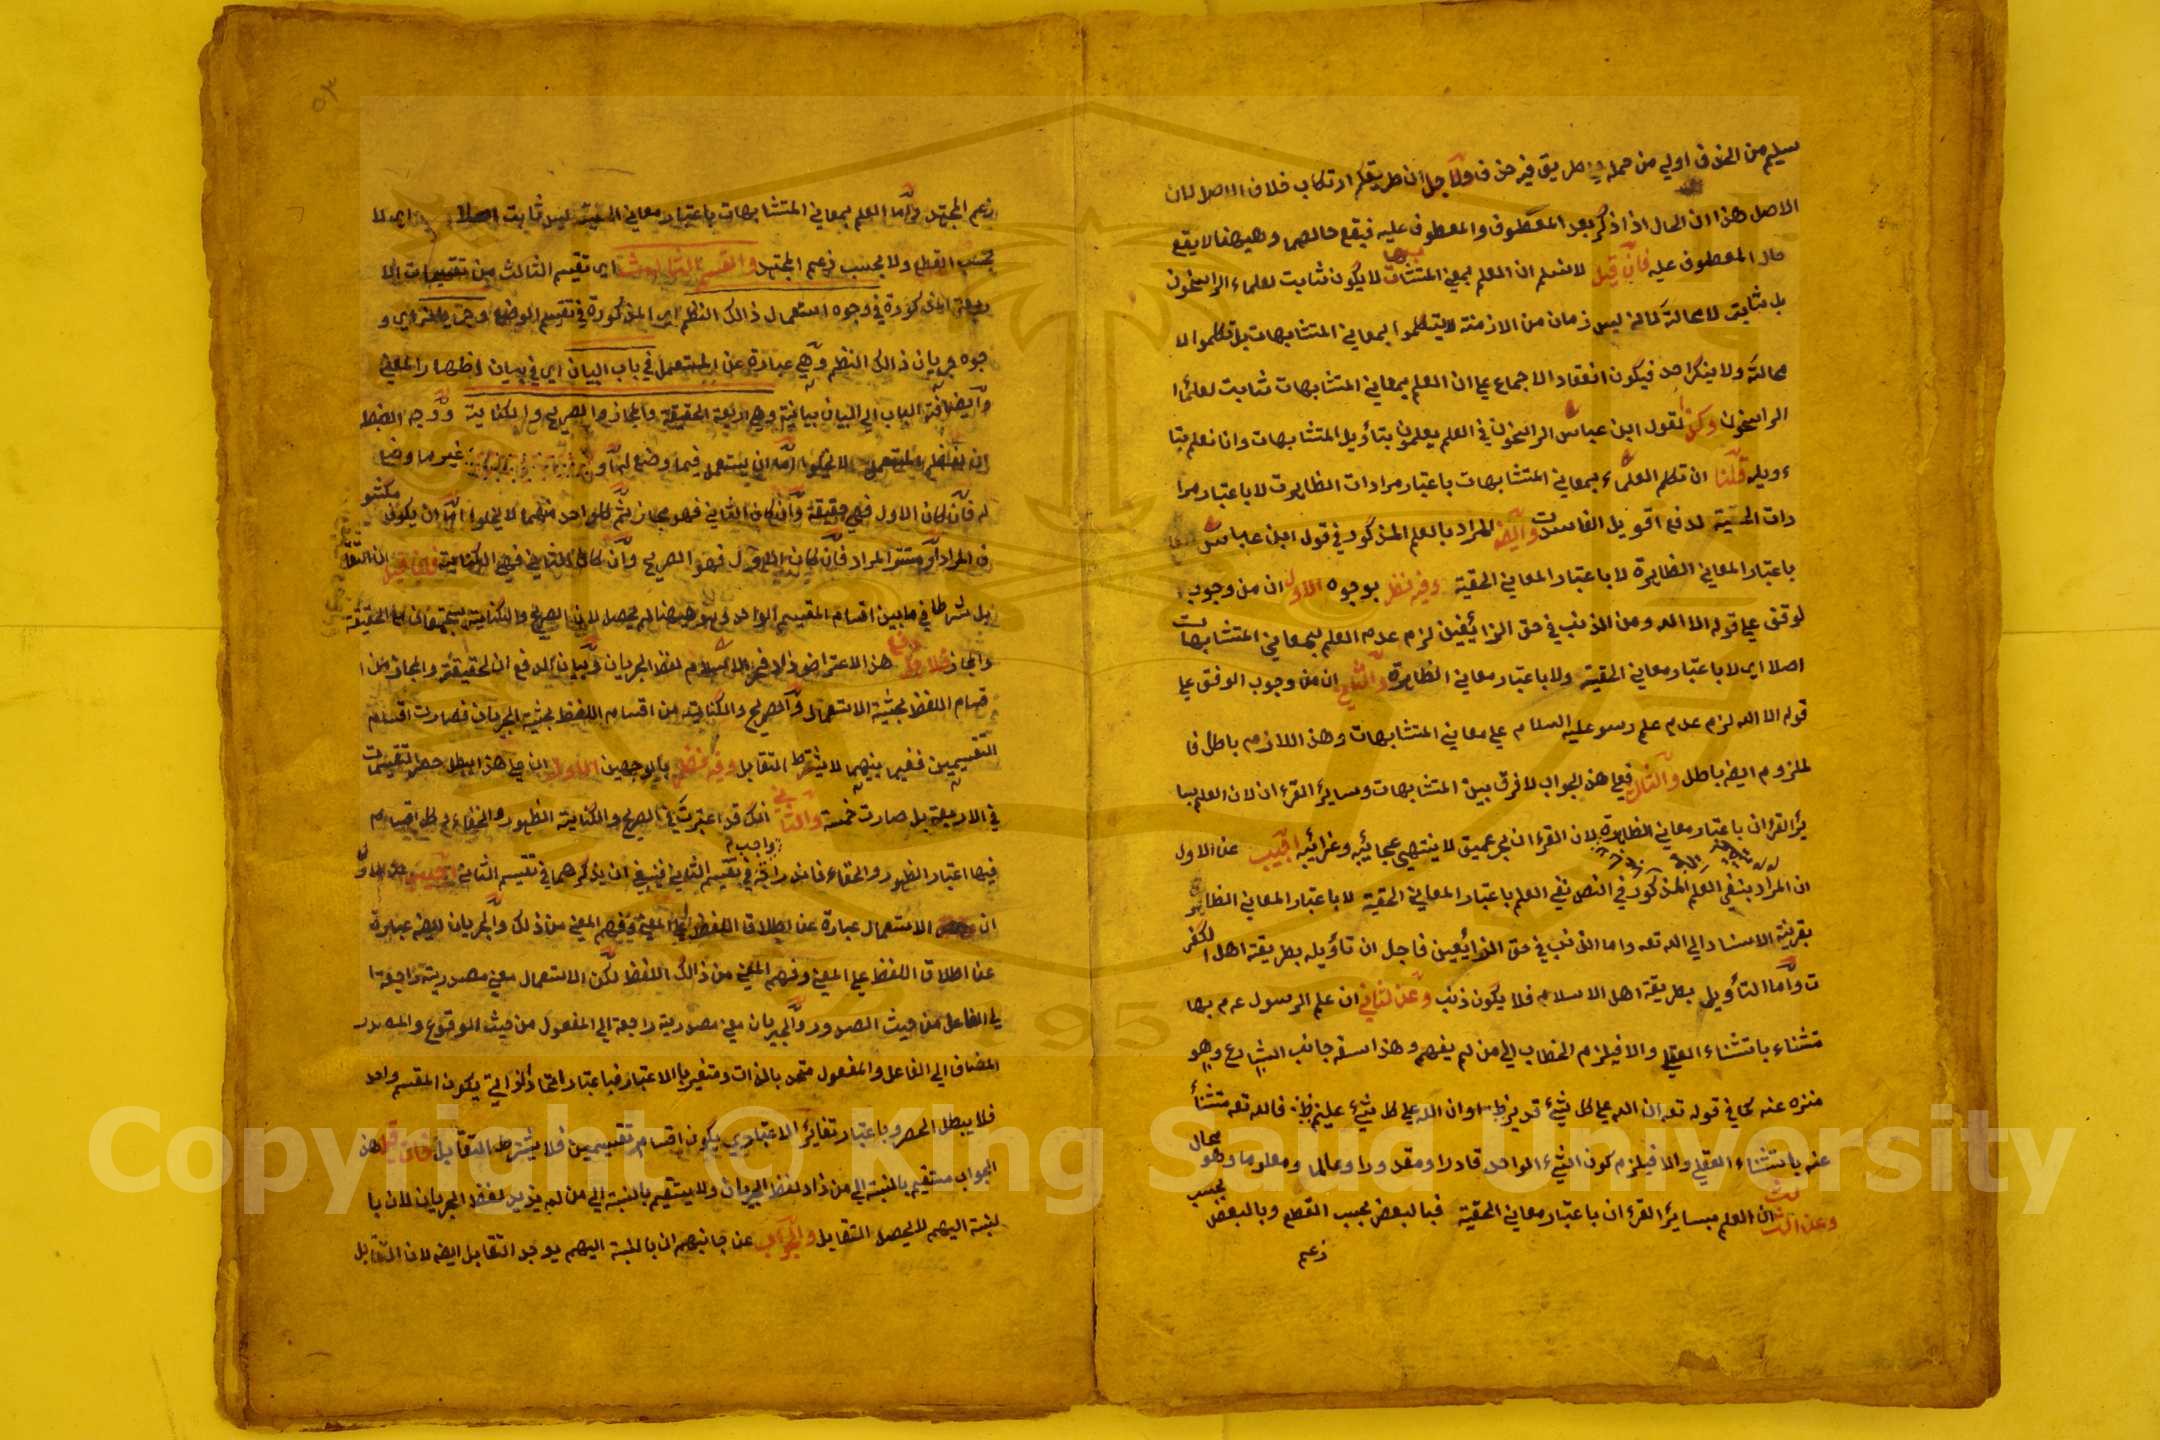 سليم من الحذف اولى من حمله على طريق فيه حذف ولاجل ان طريقكم ارتكاب خلاف الاصل لان
الاصل هذا ان الحال اذا ذكر بعد المعطوف والمعطوف عليه فيقع حالهما وههنا لا يقع
حال المعطوف عليه فان قيل لا نسلم ان العلم بمعنى المتشابهات لا يكون ثابت لعلماء الراسخون
بل ثابت لا محالة كما انه ليس زمان من الازمنة لا يتكلموا بمعاني المتشابهات بل تكلموا الا
محالة ولا ينكر احد فيكون انعقاد الاجماع على ان العلم بمعاني المتشابهات ثابت لعلماء
الراسخون وكذا لقول ابن عباس الراسخون في العلم يعلمون بتأويل المتشابهات وانا نعلم بتا
ءويله قلنا ان تكلم العلماء بمعاني المتشابهات باعتبار مرادات الظاهرت لا باعتبار مرا
دات الحقية لدفع اقويل الفاسدت وايضا المراد بالعلم المذكور في قول ابن عباس
باعتبار المعاني الظاهرة لا باعتبار المعاني الحقية وفيه نظر بوجوه الاول ان من وجوب ا
لوقف على قوله الا الله ومن الذنب في حق الزائغين لزم عدم العلم بمعاني المتشابهات
اصلا اى لا باعتبار معاني الحقية ولا باعتبار معاني الظاهرة والثاني ان من وجوب الوقف على
قوله الا الله لزم عدم علم رسول عليه السلام على معاني المتشابهات وهذا اللازم باطل فا
لملزوم ايضا باطل والثالث فعلى هذا الجواب لا فرق بين المتشابهات وسائر القرءان لان العلم بسا
ئر القرءان باعتبار معاني الظاهرة لان القرءان بحر عميق لا ينتهى عجائبه وغرائبه اجيب عن الاول
ان المراد بنفى العلم المذكور في النص نفى العلم باعتبار المعاني الحقية لا باعتبار المعاني الظاهر
بقرينة الاسناد الى الله تعه واما الذنب في حق الزائغين فاجل ان تأويله بطريقة اهل الكفر
ت واما التأويل بطريقة اهل الاسلام فلا يكون ذنب وعن الثاني ان علم الرسول عم بها
مستثناء باستثناء العقلي والا فيلزم الخطاب الى من لم يفهم وهذا سفه جانب الشارع وهو
منزه عنه كما في قوله تعه ان الله على كل شيء قدير وان الله على كل شيء عليم فالله تعه مستثنأ
عنه باستثناء العقلي والا فيلزم كون الشيء الواحد قادرا ومقدورا وعالما ومعلوما وهو محال
وعن الثالث ان العلم بسائر القرءان باعتبار معاني الحقية فبالبعض بحسب القطع وبالبعض بحسب
زعم
زعم المجتهد واما العلم بمعاني المتشابهات باعتبار معاني الحقية ليس ثابت اصلا اى لا
بحسب القطع ولا بحسب زعم المجتهد والقسم الثالث اى تقسيم الثالث من تقسيمات الا
ربعة المذكورة في وجوه استعمال ذالك النظم اى المذكورة في تقسيم الوضع وجريانه اى و
جوه جريان ذالك النظم وهى عبارة عن المستعمل في باب البيان اى في بيان اظهار المعنى
وايضا اضافة الباب الى البيان بيانية وهى اربعة الحقيقة والمجاز والصريح والكناية ووجه الضبط
ان لفظ المستعمل لا يخلوا اما ان يستعمل فيما وضع له او غير ما وضع
له فان كان الاول فهى حقيقة وان كان الثاني فهو مجاز ثم كل واحد منهما لا يخلوا اما ان يكون مكشو
ف المراد او مستتر المراد فان كان الاول فهو الصريح وان كان الثاني فهى الكناية فان قيل ان التقا
بل شرط في ما بين اقسام التقسيم الواحد وههنا لم يحصل لان الصريح والكناية يجتمعان مع الحقيقة
والمجاز هذا الاعتراض زاد فخر الاسلام لفظ الجريان وبيان الدفع ان الحقيقة والمجاز من ا
قسام اللفظ بحيثية الاستعمال والصريح والكناية من اقسام اللفظ بحيثية الجريان فصارت اقسام
التقسيمين ففيما بينهما لا يشترط التقابل وفيه نظر بالوجهين الاول ان على هذا ابطل حصر التقسيمات
في الاربعة بل صارت خمسة والثاني انك قد اعتبرت في الصريح والكناية الظهور والخفاء وكل اقسام
فيها اعتبار الظهور والخفاء فانه داخل في تقسيم الثاني فينبغى ان يذكرهما في تقسيم الثاني اجيب عن الاول
ان الاستعمال عبارة عن اطلاق اللفظ على المعنى وفهم المعنى من ذلك والجريان ايضا عبارة
عن اطلاق اللفظ على المعنى وفهم المعنى من ذالك اللفظ لكن الاستعمال معنى مصدرية راجعة ا
لى الفاعل من حيث الصدور والجريان معنى مصدرية راجعة الى المفعول من حيث الوقوع والمصدر
المضاف الى الفاعل والمفعول متحد بالذات ومتغير بالاعتبار فباعتبار اتحاد ذاتي يكون المقسم واحد
فلا يبطل الحصر وباعتبار تغائر الاعتباري يكون اقسام تقسيمين فلا يشترط التقابل فان قيل هذا
الجواب مستقيم بالنسبة الى من زاد لفظ الجريان ولا يستقيم بالنسبة الى من لم يزيد لفظ الجريان لان با
لنسبة اليهم لا يحصل التقابل والجواب عن جانبهم ان بالنسبة اليهم يوجد التقابل ايضا لان التقابل
Copyright © King Saud University